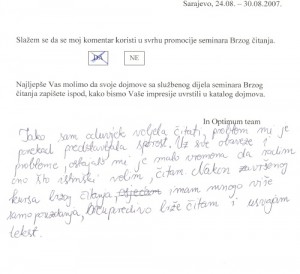 Sarajevo, 24.08. – 30.08.2007.
Slažem se da se moj komentar koristi u svrhu promocije seminara Brzog čitanja.
DA NE
Najljepše Vas molimo da svoje dojmove sa službenog dijela seminara Brzog
čitanja zapišete ispod, kako bismo Vaše impresije uvrstili u katalog dojmova.
In Optimum team
Iako sam oduvijek voljela čitati, problem mi je
predstavljala sporost. Uz sve obaveze i
probleme, ostajalo mi je malo vremena da radim
ono što istinski volim, čitam. Nakon završenog
kursa brzog čitanja, osjećam imam mnogo više
samopouzdanja, brže čitam i usvajam
tekst.